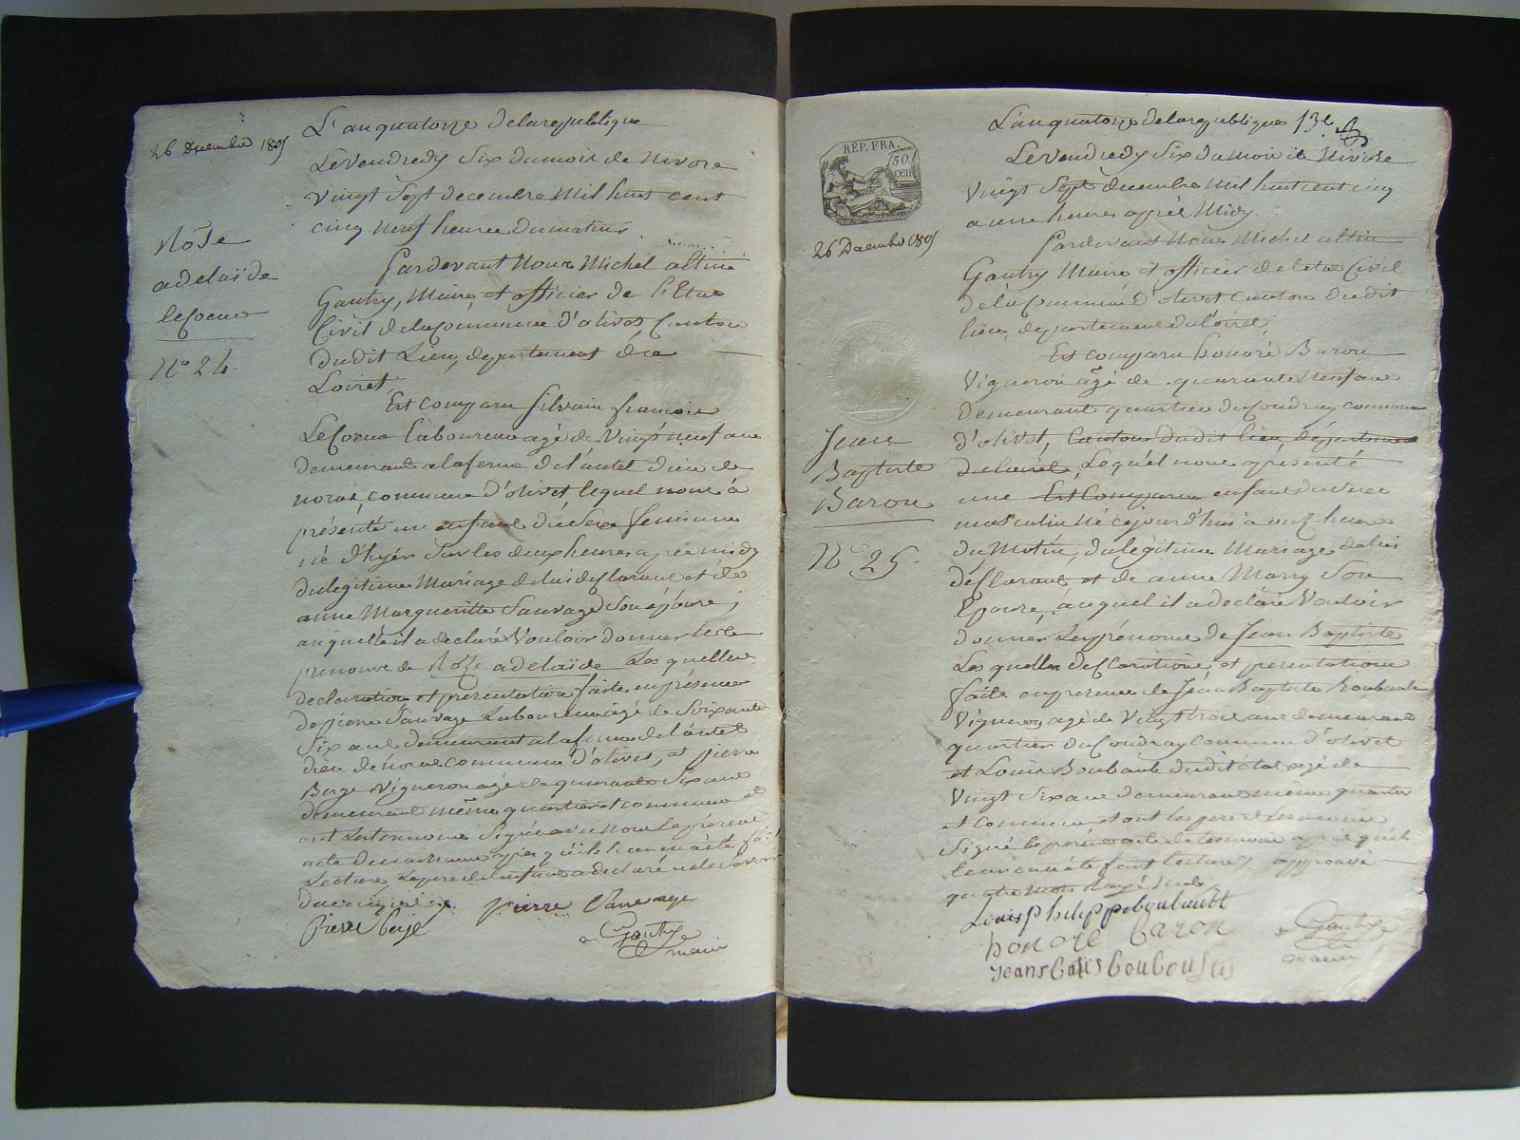 26 Decembre 1805
L'an quatorze de la republique
Le Vendredy Six du mois de Nivose
vingt Sept decembre Mil huit cent
cinq neuf heures du matin
Rose
adelaïde
leCoeur
No 24.
Pardevant Nous Michel altin
Gautry, Maire, et officier de l'Etat
Civil de la Commune d'olivet Canton
dudit Lieu, departement de
Loiret
Est comparu Silvain francois
LeCoeur laboureur agé de Vingt neuf ans
demeurant a laferme de l'autel dieu de
commune d'olivet lequel nous à
présenté un enfant du Sexe feminin
né d'hyér Sur les deux heures aprée midy
du legitime Mariage de lui desclarant et de
anne Margueritte Sauvage Son épouse;
auquelle il a declaré Vouloir donner les
prenoms de Roze adelaïde Les quelles
declaration et présentation faite en présence
de pierre Sauvage Laboureur agé de Soixante
Six ans demeurant a la ferme de l'autel
dieu de commune d'olivet, et pierre
Berge Vigneron agé de quarante Six ans
demeurant même quartier et commune et
ont Les temoins Signée avec nous le présent
acte de naissance après qu'il leur en a été fait
Lecture, Le pere de l'enfant a declaré ne le Savoir
pierre Sauvage
Pierre berge
Gautry
maire
L'an quatorze de la republique 13e
REP. FRA.
50
CEN
26 Decembre 1805
Le Vendredy Six du mois de Nivose
vingt Sept decembre Mil huit cent cinq
a une heures apprès Midy.
Pardevant Nous Michel altin
Gautry Maire et officier de letat Civil
de la Commune d'olivet Canton dudit
lieu, departement du Loiret,
Est comparu honoré Baron
Vigneron agé de quarante neuf ans
demeurant quartier du Coudray commune
Jean
Baptiste
Baron
No 25.
d'olivet, Canton dudit lieu, departement
de Loiret, Lequel nous a présenté
une Est Comparu enfant du Sexe
masculin né ce jour d'hui à onze heures
du Matin, du légitime Mariage de lui
desclarant et de anne Marry Son
Epouse, auquel il a declaré Vouloir
donner Les prénoms de Jean Baptiste
Les quelles desclaration et presentation
faite en presence de Jean Baptiste Boubault
Vigneron agé de Vingt trois ans demeurant
quartier du Coudray Commune d'olivet
et Louis Boubault dudit etat agé de
Vingt Six ans demeurant même quartier
et commune et ont les pere et temoins
Signé le présent acte de
leur en a été fait lecture, approuvé
quatre mots rayé
Louis philippe boubault
honoré baron
Jeans batis boubouault
Gautry
maire